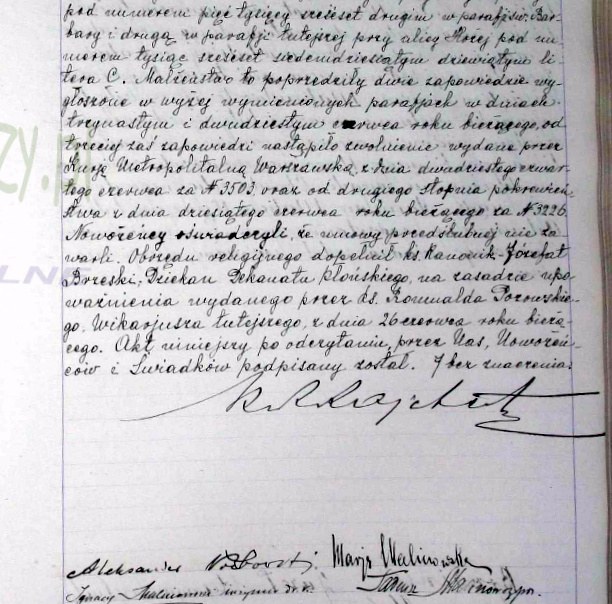 pod numerem pięć tysięcy sześćset drugim w parafji św. Bar-
bary i drugą w parafji tutejszej przy ulicy Hożej pod nu-
merem tysiąc sześćset siedemdziesiątym dziewiątym li-
tera C. Małżeństwo to poprzedziły dwie zapowiedzie wy-
głoszone w wyżej wymienionych parafjach w dniach
trzynastym i dwudziestym czerwca roku bieżącego, od
trzeciej zaś zapowiedzi nastąpiło zwolnienie wydane przez
Kurję Metropolitalną Warszawską z dnia dwudziestego czwar-
tego czerwca za № 3503 oraz od drugiego stopnia pokrewień-
stwa z dnia dziesiątego czerwca roku bieżącego za № 3226.
Nowożeńcy oświadczyli, że umowy przedślubnej nie za-
warli. Obrzędu religijnego dopełnił ks. Kanonik-Józefat
Brzeski, Dziekan Dekanatu Płońskiego, na zasadzie upo-
ważnienia wydanego przez ks. Romualda
go, Wikarjusza tutejszego, z dnia 26 czerwca roku bieżą-
cego. Akt niniejszy po odczytaniu, przez Nas, Nowożeń-
ców i Świadków podpisany został. 7 bez znaczenia.
Aleksander Marja Malinowska
Ignacy Malinowski inżynier
ZY.
LNE